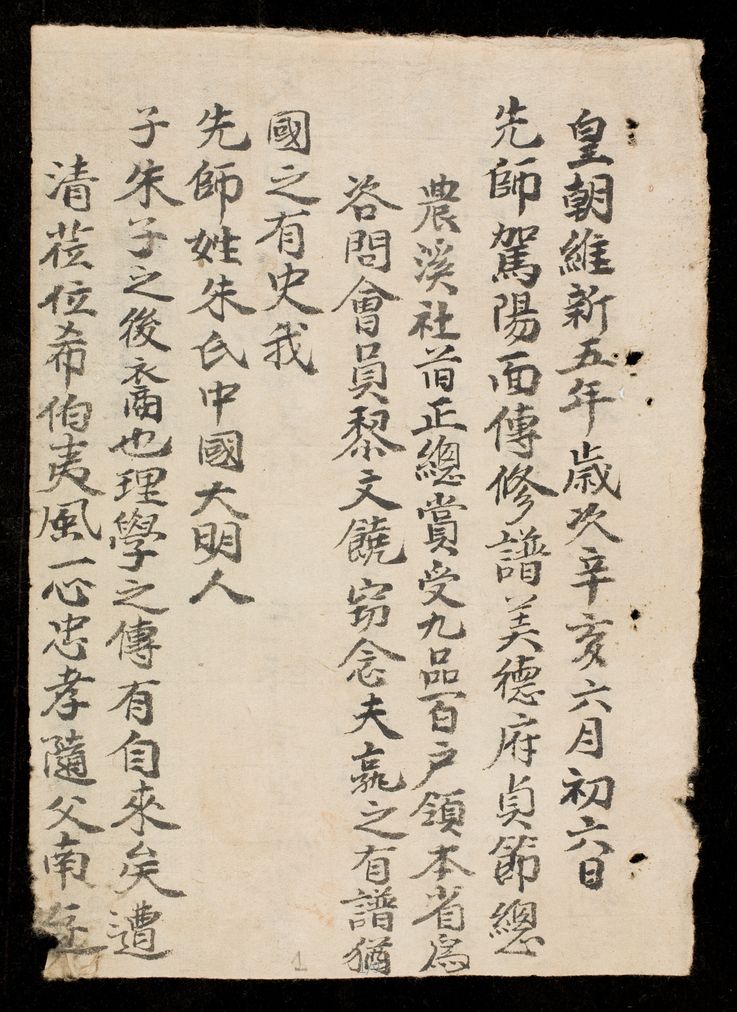 皇朝維新五年歲次辛亥六月初六日
先師駕陽面傳修譜美德府貞節總
農溪社首正總賞受九品百户領本省爲
咨問會員黎文饒窃念夫 之有譜猶
國之有史我
先師姓朱氏中國大明人
子朱子之後裔也理學之傳有自來矣遭
清莅位希伯夷風一心忠孝隨父南
1